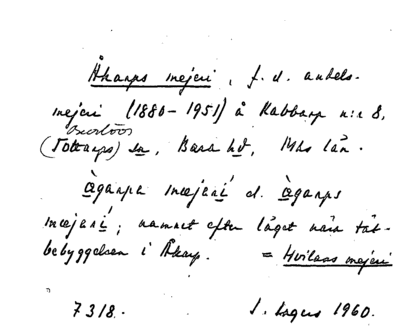 Åkarps mejeri, f. d. andels-
mejeri (1880-1951) å Kabbarp n:r 8,
Burlöv
(Tottarps) sn, Bara hd, Mlhs län.
àgarpa mæjerí el. àgarps
mæjerí; namnet efter läget nära tät-
bebyggelsen i Åkarp. = Hvilans mejeri
7318. S. Lagers 1960.